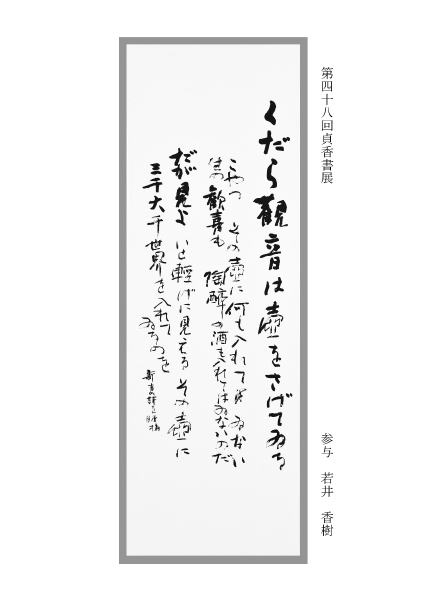 第四十八回貞香書展
参与 若井 香樹
くだら観音は壺をさげてゐる
こやつ その壺に何も入れてはゐない
生の歓喜も 陶酔の酒も入れてはゐないのだ
だが見よ いと輕げに見える その壺に
三千大千世界を入れて
ゐるのを